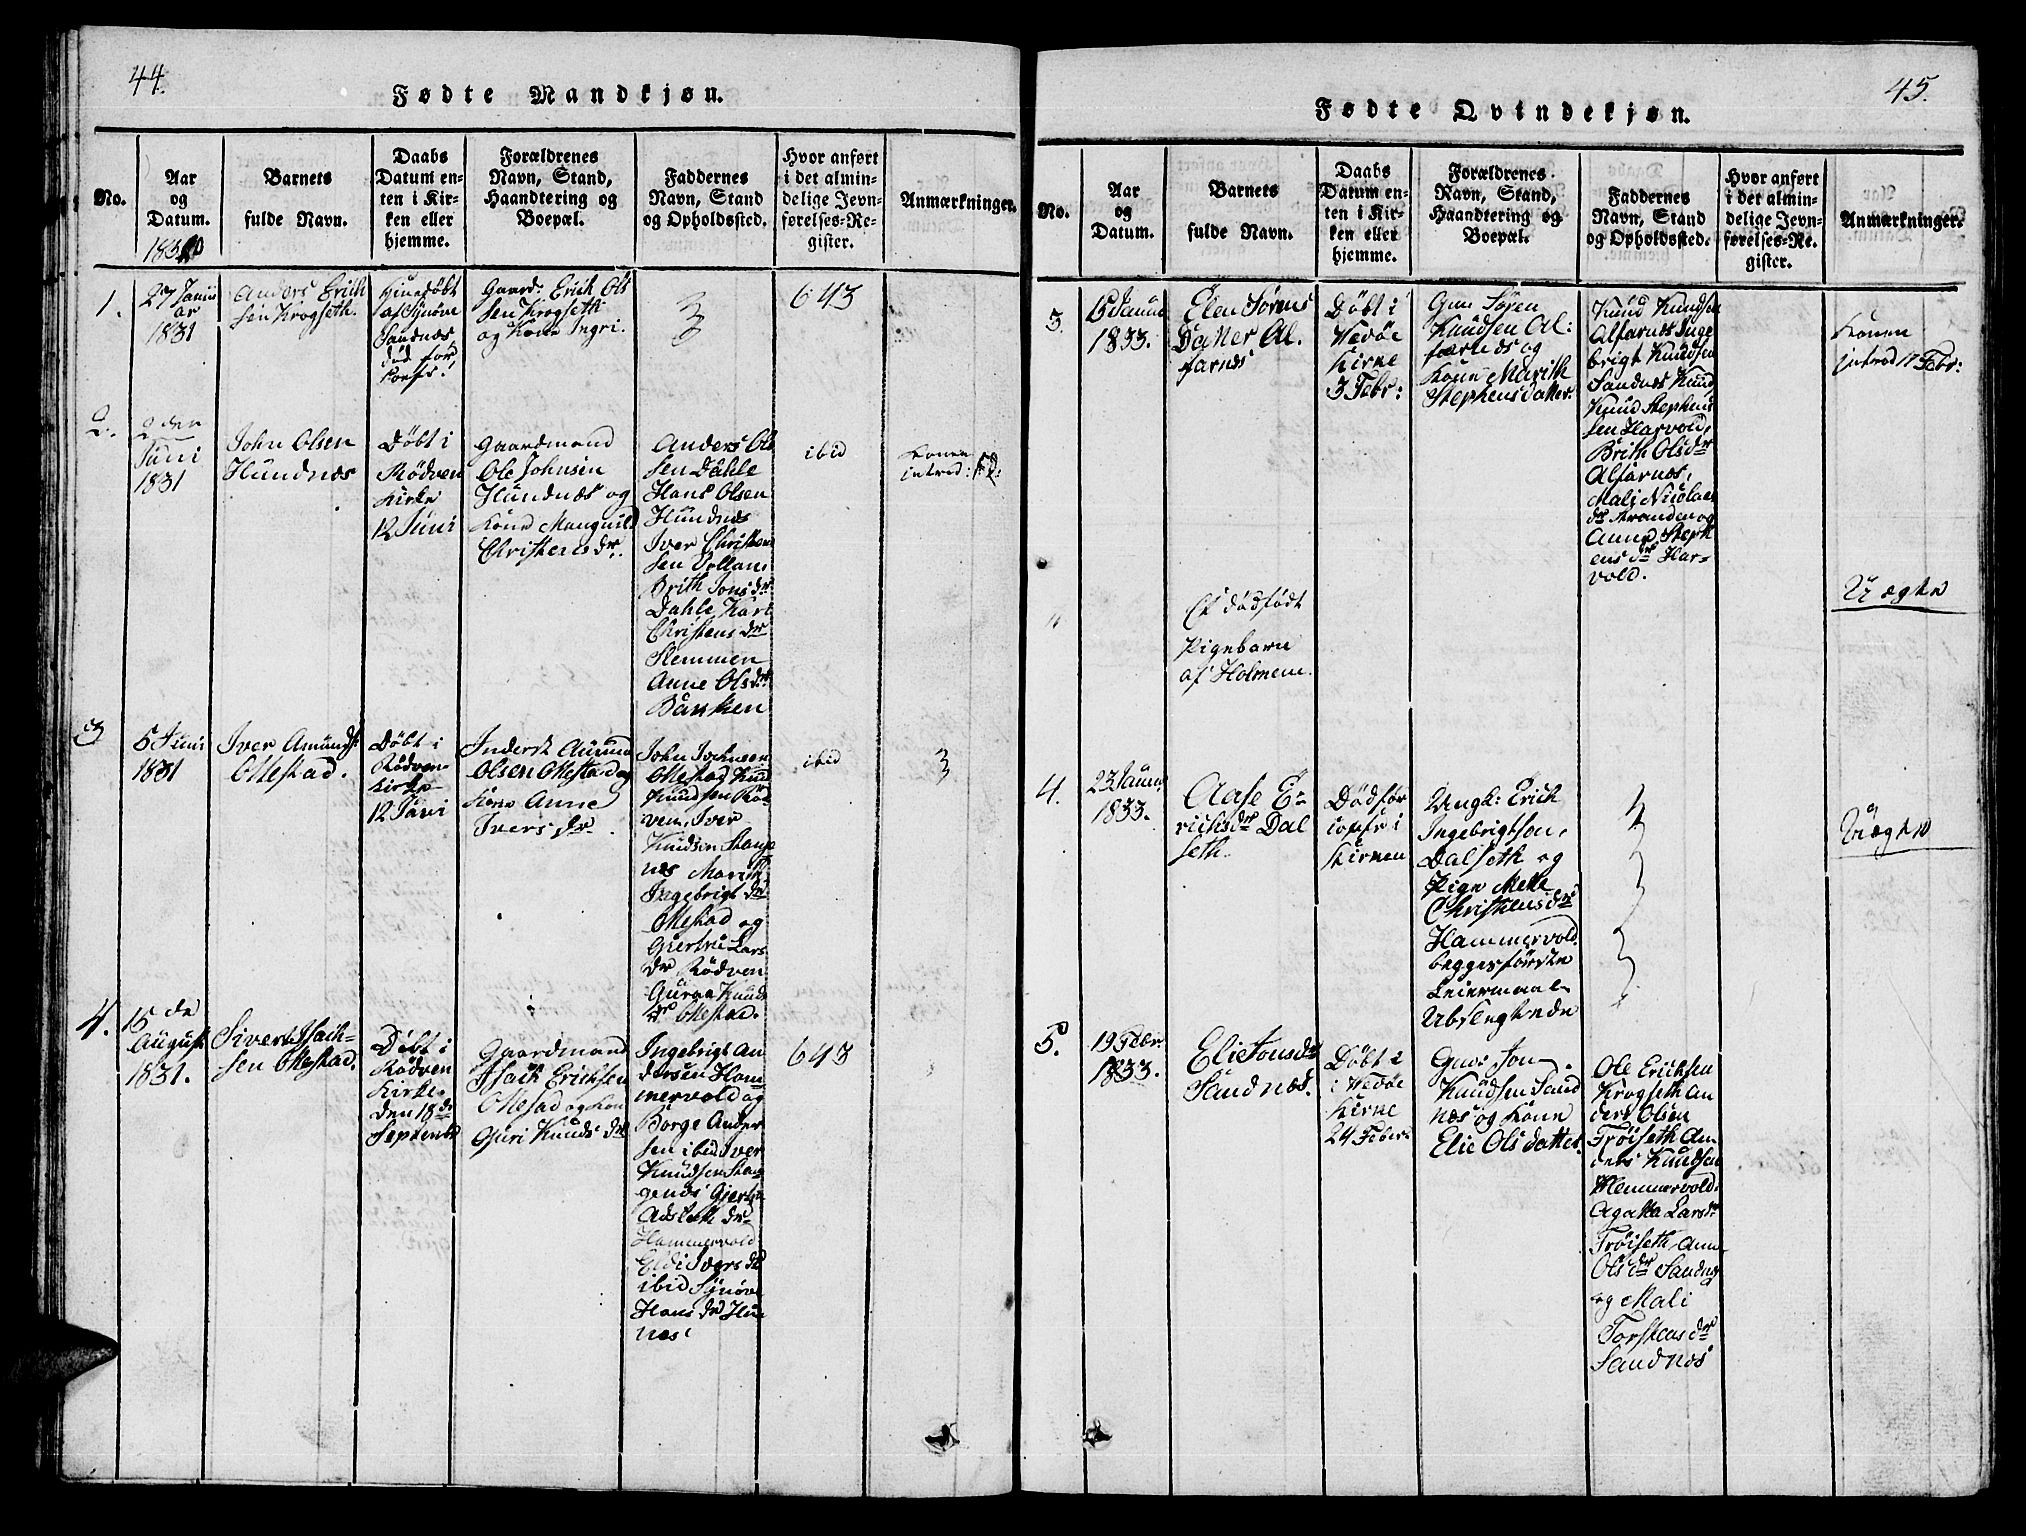 44.
Fødte Mandkjøn.
No.
Aar
og
Datum.
1831
Barnets
fulde Navn.
Daabs
Datum en-
ten i Kir-
ken eller
hjemme.
Forældrenes
Navn, Stand,
Haandtering og
Boepæl.
Faddernes
Navn, Stand
og Opholdssted.
Hvor anført
i det almin-
delige Jevn-
førelses-Re-
gister.
Anmærkninger.
1.
27 Janu
ar
1831
Anders Erich
sen Krogseth.
Hiuedøbt
af Synøve
Sandnæs,
død for
Gaard: Erich Ols
sen Krogseth
og Kone Ingri.
643
2.
2 den
Juni
1831
John Olsen
Hundnæs
Døbt i
Rødven
Kirke
12 Juni
Gaardmand
Ole Johnsen
Hundnæs og
Kone Mangnild
Christensdr.
Anders Ol
sen Dahle
Hans Olsen
Hundnæs
Iver Christen
sen Vollan
Brith Jonsdr
Dahle, Kari
Christensdr
Slemmen
Anne Olsdr
Bakken
ibid
Konen
introd:
3
5 Juni
1831
Iver Amunds
Ottestad.
Døbt i
Rødven
Kirke
12 Juni
Inderst Amund
Olsen Ottestad og
Kone Anne
Ivers dr.
John Johnsen
Ottestad Knud
Knudsen Rød
ven, Iver
Knudsen Stange
næs Marith
Ingebrigt dr
Ottestad og
Giertru Lars
dr Rødven
Guraa Knuds
dr Ottestad.
ibid
4.
15 de
August
1831.
Sivert Isach-
sen Ottestad.
Døbt i
Rødven
Kirke
den 18 de
Septenbr
Gaardmand
Isach Erichsen
Ottestad og Kone
Guri Knuds dr
Ingebrigt An
dersen Ham
mervold og
Børge Ander
sen ibid Iver
Knudsen Stan
genes Giertru
Adsleth dr
Hammervold
Eldi Ivers dr
ibid Synøve
Hans dr Hun
næs.
643
45.
Fødte Qvindekjøn.
No.
Aar
og
Datum.
Barnets
fulde Navn.
Daabs
Datum en-
ten i Kir-
ken eller
hjemme.
Forældrenes
Navn, Stand,
Haandtering og
Boepæl.
Faddernes
Navn, Stand
og Opholdssted.
Hvor anført
i det almin-
delige Jevn-
førelses-Re-
gister.
Anmærkninger.
3.
15 Januar
1833.
Elen Sørens
Datter Al.
farnes
Døbt i
Vedøe
Kirke
3 Febr:
Gm: Søren
Knudsen Al:
farnes og
Kone Marith
Stephensdatter.
Knud Knudsen
Alfarnes Inge
brigt Knudsen
Sandnes Knud
Knud Stephens
sen Harvold,
Brith Olsdr
Alfarnes,
Mali Nicolai
dr Stranden og
Anne Steph
ensdr Har-
vold.
Konen
introd 17 Febr:
"
Et dødfødt
Pigebarn
af Holmem.
Uægte
4.
23 Januar
1833.
Aase E-
richsdr Dal
seth.
Død før
i
Kirken
Ungk: Erich
Ingebrigtsøn,
Dalseth og
Pige Mette
Christensdr
Hammervold
begges første
Leiermaal
Ubslegtede
Uægte
5.
19 Febr:
1833.
Elie Jonsdr
Sandnæs.
Døbt i
i Vedøe
Kirke
24 Febr:
Gm: Jon
Knudsen Sand
næs og Kone
Elie Olsdatter.
Ole Erichsen
Krogseth An
ders Olsen
Trøiseth An
ders Knudsen
Hemmervold.
Agatha Larsdr
Trøiseth, Ann
Olsdr Sandnes
og Mali
Torstensdr
Sandnæs